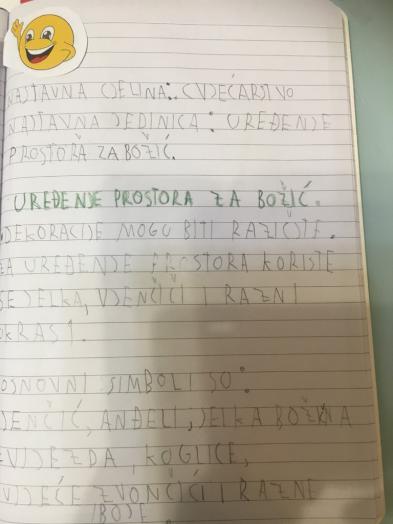 NASTAVNA CJELINA: CVJEĆARSTVO
NASTAVNA JEDINICA: UREĐENJE
PROSTORA ZA BOŽIĆ.
UREĐENJE PROSTORA ZA BOŽIĆ.
DEKORACIJE MOGU BITI RAZIČITE.
ZA UREĐENJE PROSTORA KORISTE
SE JELKA, VJENČIĆI I RAZNI
UKRASI.
OSNOVNI SIMBOLI SO:
VJENČIĆ, ANĐELI, JELKA BOŽIČNA
ZVIJEZDA, KUGLICE,
SVIJEĆE ZVONČIĆI I RAZNE
BOJE.